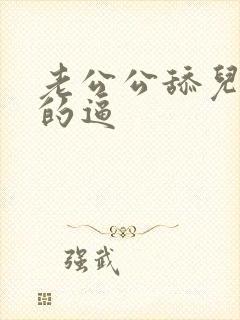 老公公舔兒
的逼
强武